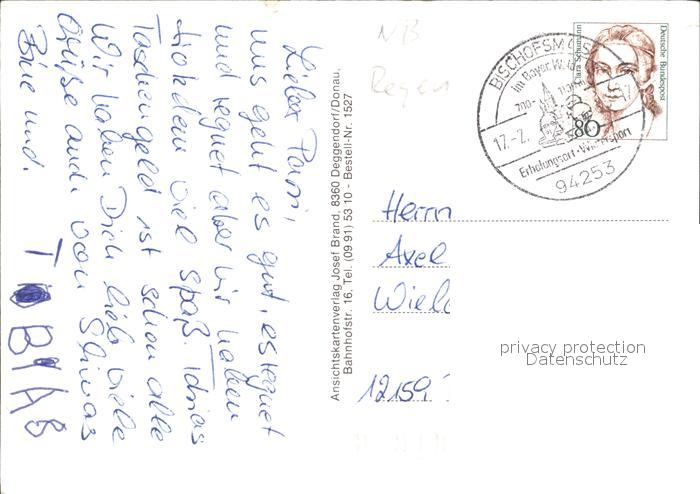 Lieber Papi,
uns geht es gut, es regnet
und regnet aber wir haben
trotzdem viel Spaß. Tobias
Taschengeld ist schon alle
Wir haben Dich lieb viele
Grüße auch von
und.
T
Ansichtskartenverlag Josef Brand, 8360 Deggendorf/Donau.
Bahnhofstr. 16, Tel. (09 91) 53 10 - Bestell-Nr. 1527
NB
Regen
BISCHOFSMAIS
im Bayer. Wald
700-
17.-2.
Erholungsort - Wintersport
94253
Clara Schumann
Deutsche Bundespost
80
Herrn
Axel
Wiel
12159
privacy protection
Datenschutz